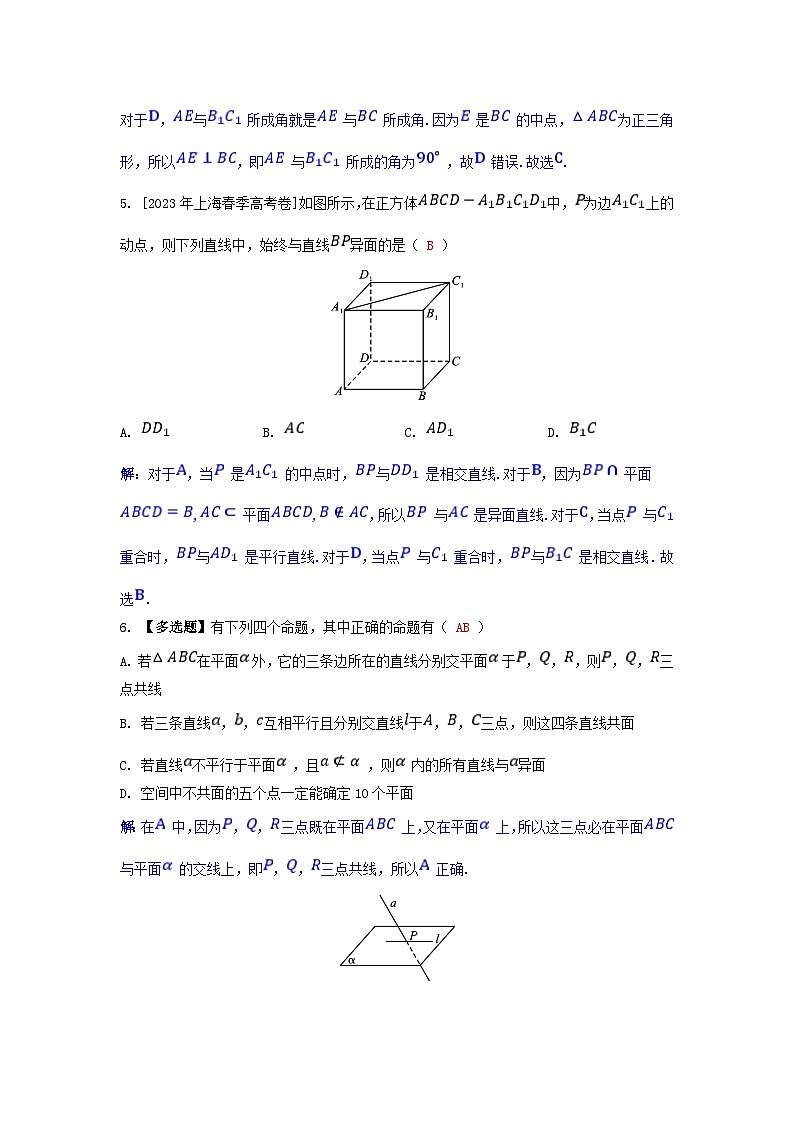 对于D，AE与B₁C₁ 所成角就是AE 与BC 所成角.因为E 是BC 的中点，△ABC为正三角
形，所以AE⊥BC，即AE 与B₁C₁ 所成的角为90° ，故D 错误.故选C.
5. [2023年上海春季高考卷]如图所示,在正方体ABCD－A₁B₁C₁D₁中，P为边A₁C₁上的
动点，则下列直线中，始终与直线BP异面的是（ B ）
D₁
C₁
A₁
B₁
D
C
A
B
A. DD₁ B. AC C. AD₁ D. B₁C
解:对于A,当P 是A₁C₁ 的中点时，BP与DD₁ 是相交直线.对于B,因为BP∩ 平面
ABCD＝B,AC⊂ 平面ABCD,B∉AC,所以BP 与AC 是异面直线.对于C,当点P 与C₁
重合时，BP与AD₁ 是平行直线.对于D,当点P 与C₁ 重合时，BP与B₁C 是相交直线．故
选B.
6. 【多选题】有下列四个命题，其中正确的命题有（ AB ）
A. 若△ABC在平面α外，它的三条边所在的直线分别交平面α于P，Q，R，则P，Q，R三
点共线
B. 若三条直线a，b，c互相平行且分别交直线l于A，B，C三点，则这四条直线共面
C. 若直线a不平行于平面α ，且a⊄α ，则α 内的所有直线与a异面
D. 空间中不共面的五个点一定能确定10个平面
解 在A 中,因为P，Q，R三点既在平面ABC 上,又在平面α 上,所以这三点必在平面ABC
与平面α 的交线上，即P，Q，R三点共线，所以A 正确.
a
P
l
α